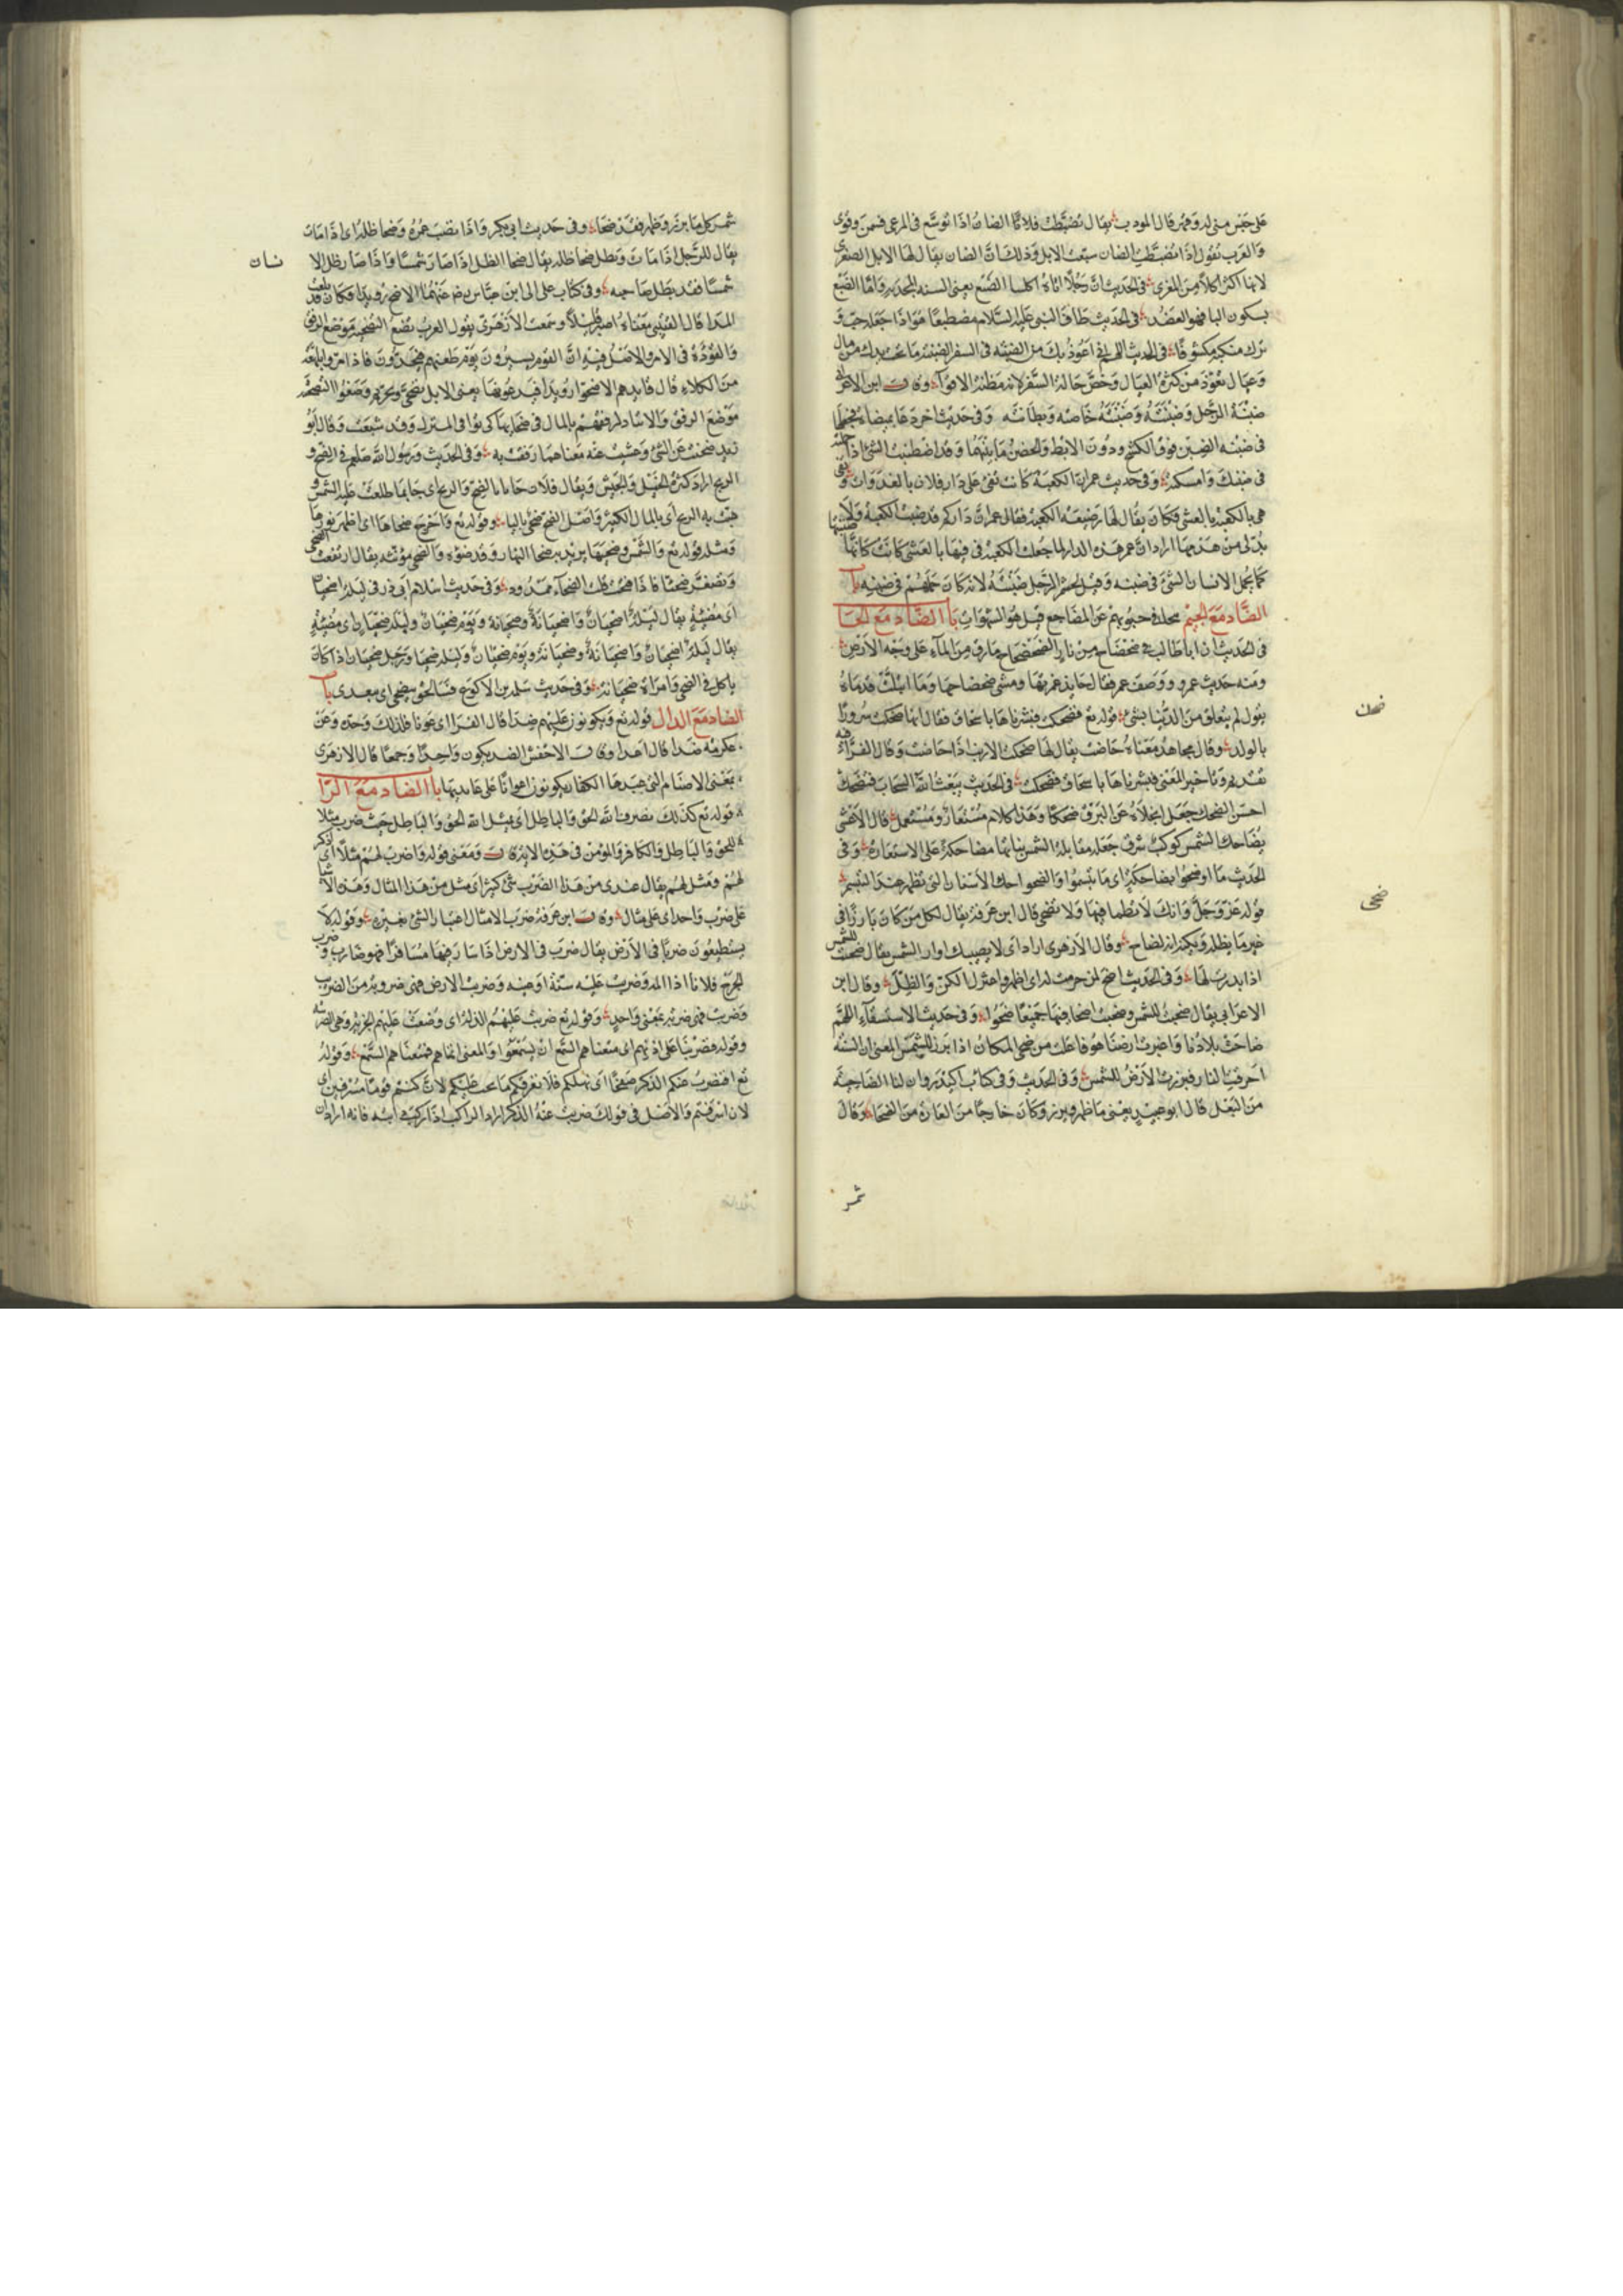 على جبس منه له وهم قال المودب يقال تضبطت فلانا الضان اذا توسع فى المرعى فسمن وقوى
والعرب تقول اذا تضبطت الضان سبعت الابل وذلك ان الضان يقال لها الابل الصغرى
لانها اكثر اكلا من المعزى فى الحديث ان رجلا اتاه اكلنا الضبع يعنى السنه المجدبه واما الضبع
بسكون البا فهو العضد فى الحديث طاف النبى عليه السلام مضطبعا هو اذا جعله تحت و
ترك منكبه مكشوفا فى الحديث اللهم انى اعوذ بك من الضبنه فى السفر الضبنه ما تحت يدك من مال
وعيال تعوذ من كثرة العيال وخص حاله السفر لانه مظنه الاقوآء وقال ابن الاعرابى
ضبنة الرجل وضبنته وضبنته خاصته وبطانته وفى حديث اخر دعا بميضاه فجعلها
فى ضبنه الضبن فوق الكشح ودون الابط والحضن ما بينهما وقد اضطبنت الشئ اذا حملته
فى ضبنك وامسكته وفى حديث عمر ان الكعبة كانت تفئ على دار فلان بالغدوات وتفى
هى بالكعبه بالعشى وكان يقال لها رضيعه الكعبه فقال عمر ان داركم قد ضبنت الكعبه ولا
بد لى من هدمها اراد ان عمر هذه الدار لما جعلت الكعبه فى فيها بالعشى كانت كانها ضبنتها
كما يحمل الانسان الشئ فى ضبنه وقيل لحشم الرجل ضبنته لانه كان حملهم فى ضبنه با
الضاد مع الجيم جنوبهم عن المضاجع قيل هو الشهوات با الضاد مع الحا
فى الحديث ان ابا طالب فى ضحضاح من نار الضحضاح ما رق من المآء على وجه الارض
ومنه حديث عمرو ووصف عمر فقال جانب غمرتها ومشى ضحضاحها وما ابتلت قدماه
يقول لم يتعلق من الدنيا بشئ قوله تع فضحكت فبشرناها باسحاق فقال انها ضحكت سرورا
بالولد وقال مجاهد معناه حاضت يقال لها ضحكت الارنب اذا حاضت وقال الفرآء فيه
تقديم وتاخير المعنى فبشرناها باسحاق فضحكت فى الحديث يبعث الله السحاب فتضحك
احسن الضحك جعل انجلاه عن البرق ضحكا وهذا كلام مستعار ومستعمل قال الاعشى
يضاحك الشمس كوكب شرق جعل مقابله الشمس بنباتها مضاحكة على الاستعارة وفى
الحديث ما اوضحوا بضاحكة اى ما تبسموا والضواحك الاسنان التى تظهر عند التبسم
قوله عز وجل وانك لا تظما فيها ولا تضحى قال ابن عرفه يقال لكل من كان بارزا فى
غير ما يظله ويكنه انه لضاح وقال الازهرى اراد اى لا يصيبك اوار الشمس يقال ضحيت للشمس
اذا بدرت لها وفى الحديث اضح لمن احرمت له اى اظهر واعتزل الكن والظل وقال ابن
الاعرابى يقال ضحيت للشمس وضحيت اضحا فيهما جميعا ضحوا وفى حديث الاستسقآء اللهم
ضاحت بلادنا واغبرت ارضنا هو فاعلت من ضحى المكان اذا برز للشمس المعنى ان السنه
احرقت النبات فبرزت الارض للشمس وفى الحديث وفى كتاب اكيدر وان لنا الضاحية
من البعل قال ابو عبيد يعنى ما ظهر وبرز وكان خارجا من العمارة من الضحا وقال
شمر
ضحك
ضحى
شمر كل ما برز وظهر فقد ضحا وفى حديث ابى بكر واذا نضب عمره وضحا ظله اى اذا مات
يقال للرجل اذا مات وبطل ضحا ظله يقال ضحا الظل اذا صار شمسا واذا صار ظل الا
نسان
شمسا فقد بطل صاحبه وفى كتاب على الى ابن عباس رضى عنهما الا ضح رويدا فكان قد بلغت
المدا قال القتيبى معناه اصبر قليلا وسمعت الازهرى يقول العرب تضع التضحيه موضع الرفق
والتوده فى الامر والاصل فيه ان القوم يسيرون يوم ظعنهم فاذا مروا بلمعه
من الكلاء قال قايدهم الا ضحوا رويدا فيدعونها يعنى الابل تضحى وتجر ثم وضعوا التضحيه
موضع الرفق والاتئاد لرفقهم بالمال فى ضحايها كى توافى المنزل وقد شبعت وقال ابو
زيد ضحيت عن الشئ وعشيت عنه معناهما رفقت به وفى الحديث ورسول الله صلعم فى الضح و
الريح اراد كثرة الخيل والجيش ويقال فلان جآء بالضح والريح اى جا بما طلعت عليه الشمس و
هبت به الريح اى بالمال الكثير واصل الضح ضحى باليا وقوله تع واخرج ضحاها اى اظهر نورها
ومثله قوله تع والشمس وضحيها يريد به ضحا النهار وقد ضوءه والضحى مونثه يقال ارتفعت الضحى
وتصغر ضحيا فاذا فتحت قلت الضحآء ممدود وفى حديث اسلام ابى ذر فى ليله اضحيان
اى مضيئة يقال ليلة اضحيان واضحيانة وضحيانة ويوم ضحيان وليله ضحيا اى مضيئة
يقال ليلة اضحيان واضحيانة وضحيانة ويوم ضحيان وليله ضحيا ورجل ضحيان اذا كان
ياكل فى الضحى وامراة ضحيانه وفى حديث سلمة بن الاكوع نتضحى اى نتغدى با
الضاد مع الدال قوله تع ويكونون عليهم ضدا قال الفرا اى عونا فلذلك وحده وعن
عكرمه ضدا قال اعدا وقال الاخفش الضد يكون واحدا وجمعا قال الازهرى
يعنى الاصنام التى عبدها الكفار يكونون اعوانا على عابديها با الضاد مع الرا
قوله تع كذلك يضرب الله الحق والباطل اى يمثل الله الحق والباطل حيث ضرب مثلا
للحق والباطل والكافر والمؤمن فى هذه الايه ومعنى قوله واضرب لهم مثلا اى اذكر
لهم ومثل لهم يقال عندى من هذا الضرب شئ كثير اى مثل من هذا المثال وهذه الاشيا
على ضرب واحد اى على مثال وقال ابن عرفه ضرب الامثال اعتبار الشئ بغيره وقوله لا
يستطيعون ضربا فى الارض يقال ضرب فى الارض اذا سار فيها مسافرا فهو ضارب و ضرب
الجرح فلانا اذا المه وضربت عليه سنة اوجبه وضربت الارض فهى ضروبة من الضرب
وضربت فهى ضربه بمعنى واحد وقوله تع ضربت عليهم الذلة اى وضعت عليهم الجزية وهى الضريبة
وقوله فضربنا على اذانهم اى منعناهم السمع ان يسمعوا والمعنى انامهم فمنعناهم السمع وقوله
تع افنضرب عنكم الذكر صفحا اى نهملكم فلا نعرفكم ما يجب عليكم لان كنتم قوما مسرفين اى
لان اسرفتم والاصل فى قولك ضربت عنه الذكر اراد الراكب اذا ركب دابته فانه اراد ان